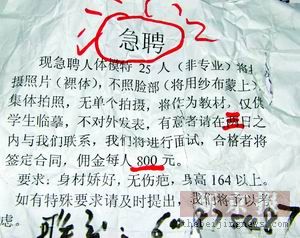 急聘
现急聘人体模特 25 人（非专业）将拍
摄照片（裸体），不照脸部（将用纱布蒙上）
集体拍照，无单个拍摄，将作为教材，仅供
学生临摹，不对外发表，有意者请在三日之
内与我们联系，我们将进行面试，合格者将
签定合同，佣金每人 800 元。
要求：身材娇好，无伤疤，身高 164 以上。
如有特殊要求请及时提出，我们将予以考
虑。